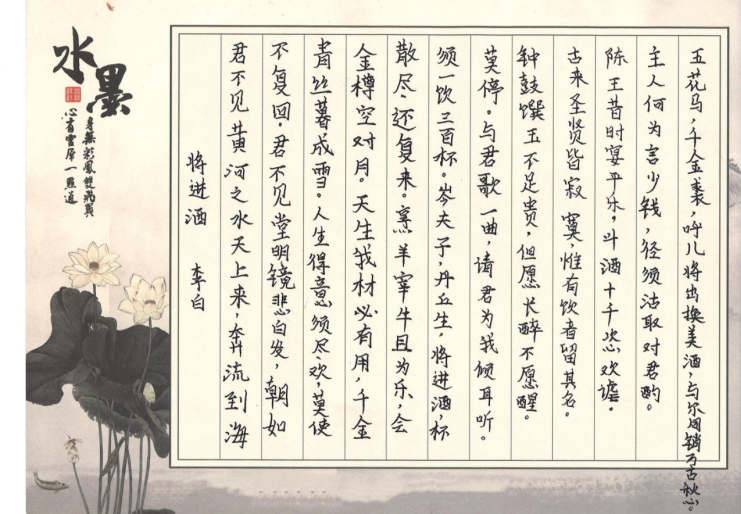 水墨
身無彩鳳雙飛翼
心有靈犀一點通
将进酒 李白
君不见黄河之水天上来，奔流到海
不复回。君不见堂明镜悲白发，朝如
青丝暮成雪。人生得意须尽欢，莫使
金樽空对月。天生我材必有用，千金
散尽还复来。烹羊宰牛且为乐，会
须一饮三百杯。岑夫子，丹丘生，将进酒，杯
莫停。与君歌一曲，请君为我倾耳听。
钟鼓馔玉不足贵，但愿长醉不愿醒。
古来圣贤皆寂寞，惟有饮者留其名。
陈王昔时宴平乐，斗酒十千恣欢谑。
主人何为言少钱，径须沽取对君酌。
五花马，千金裘，呼儿将出换美酒，与尔同销万古愁。